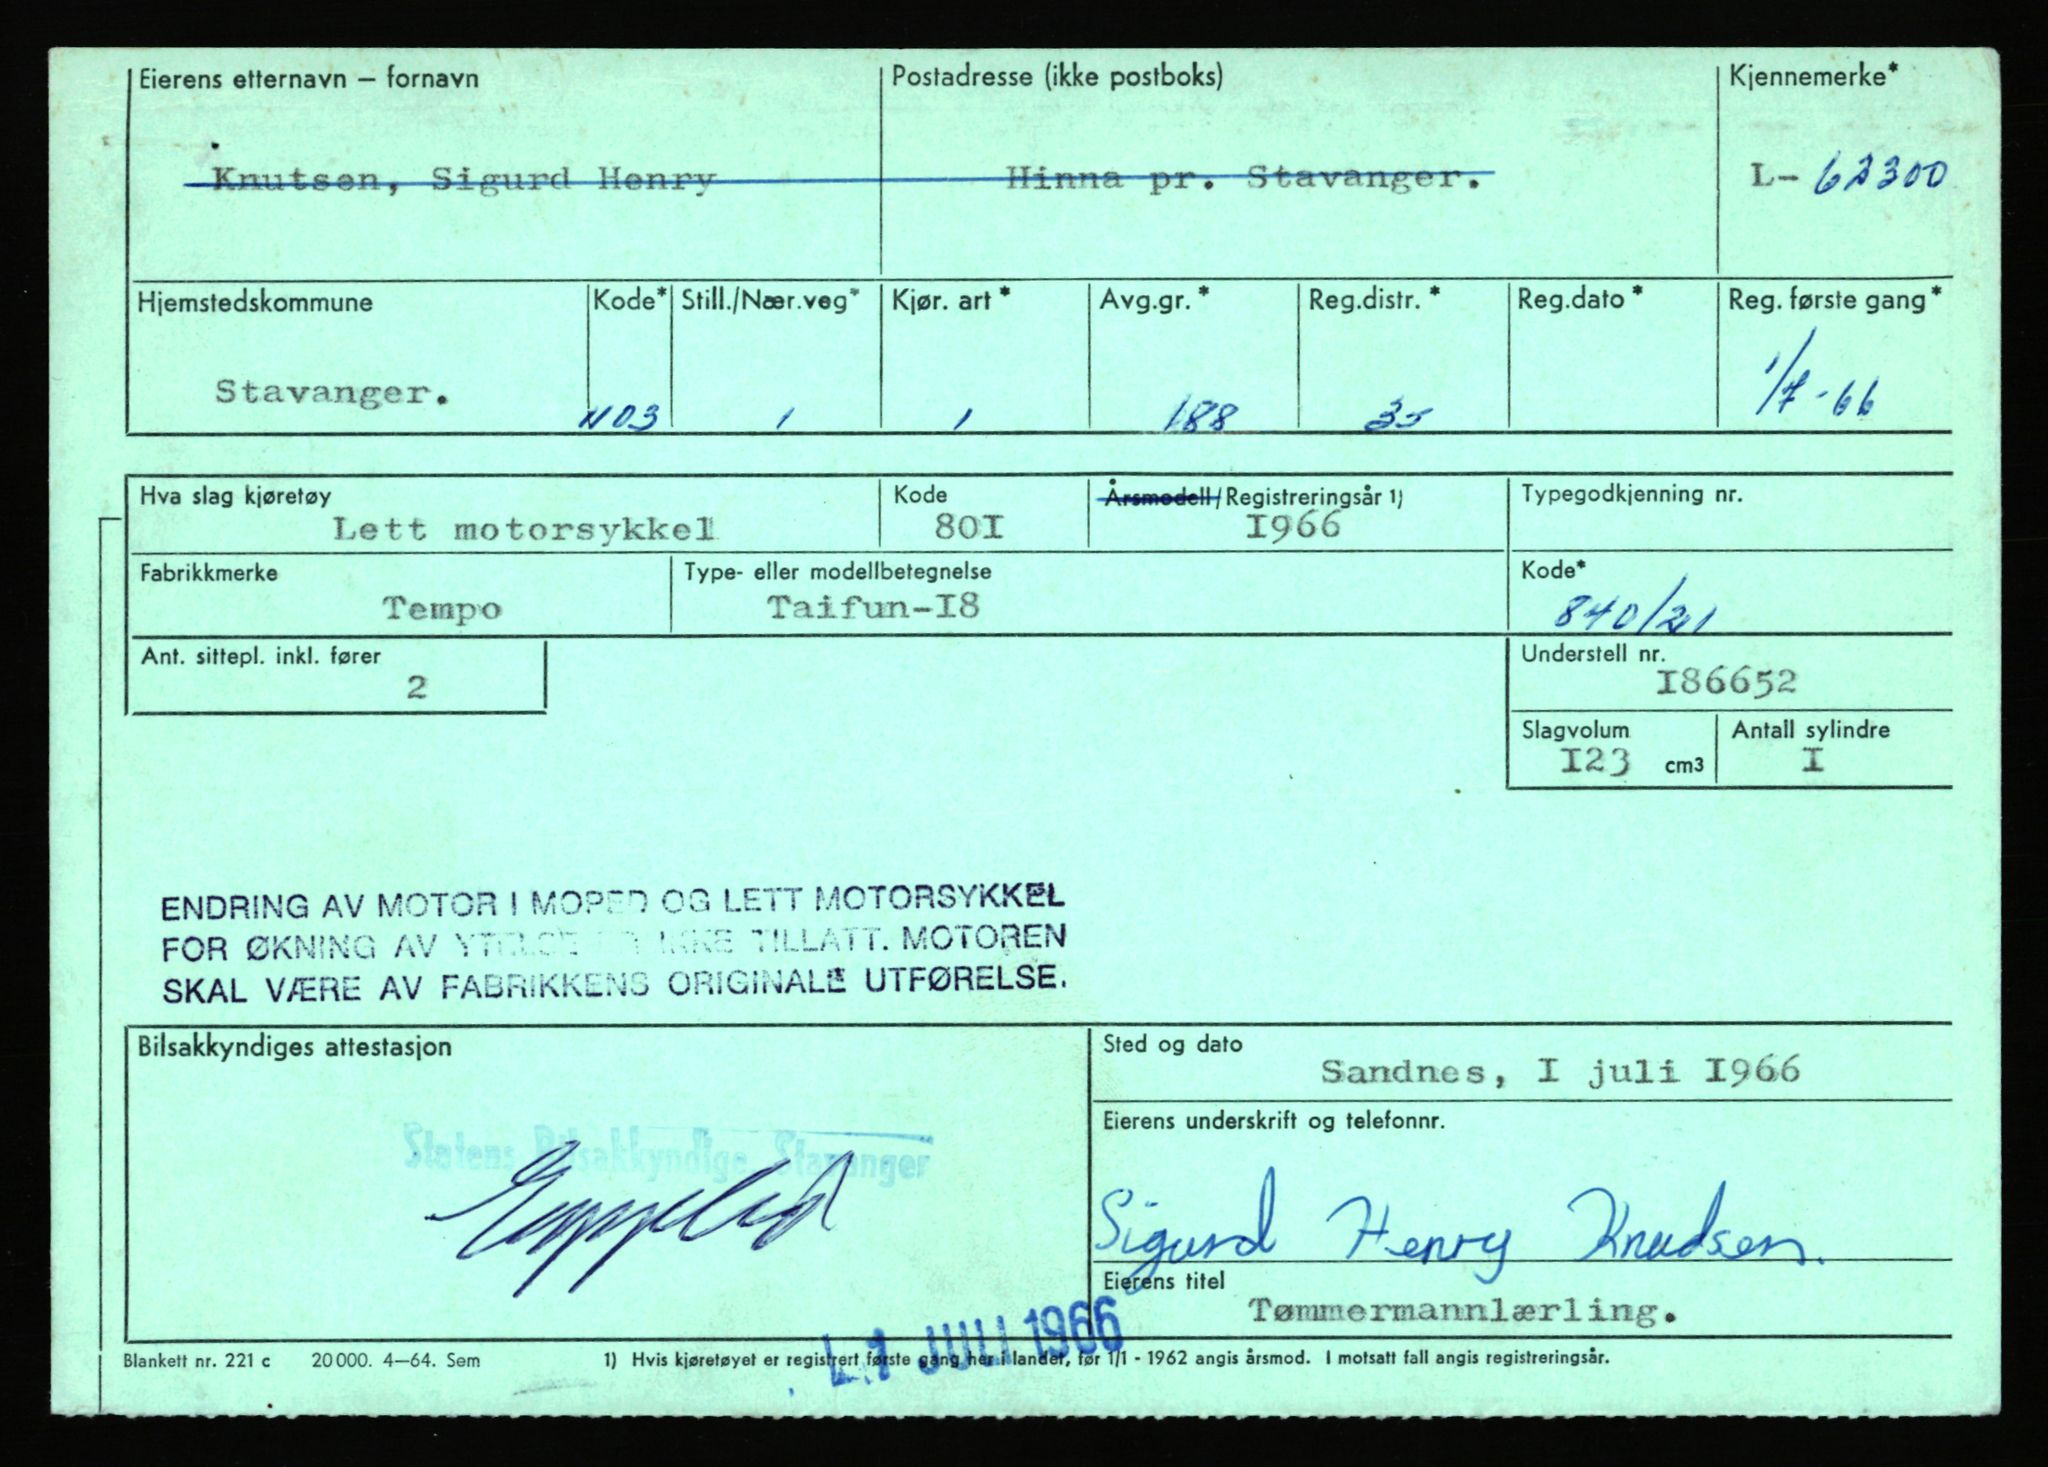 Eierens etternavn – fornavn
Postadresse (ikke postboks)
Kjennemerke*
Knutsen, Sigurd Henry
Hinna pr. Stavanger.
L- 62300
Hjemstedskommune
Kode*
Still./Nær.veg*
Kjør. art*
Avg.gr.*
Reg.distr.*
Reg.dato*
Reg. første gang*
Stavanger.
1103
1
1
188
35
1/7-66
Hva slag kjøretøy
Kode
Årsmodell/Registreringsår 1)
Typegodkjenning nr.
Lett motorsykkel
80I
I966
Fabrikkmerke
Type- eller modellbetegnelse
Kode*
Tempo
Taifun-I8
840/21
Ant. sittepl. inkl. fører
Understell nr.
2
I86652
Slagvolum
Antall sylindre
I23 cm3
I
ENDRING AV MOTOR I MOPED OG LETT MOTORSYKKEL
FOR ØKNING AV YTELSE ER IKKE TILLATT. MOTOREN
SKAL VÆRE AV FABRIKKENS ORIGINALE UTFØRELSE.
Bilsakkyndiges attestasjon
Sted og dato
Sandnes, I juli I966
Eierens underskrift og telefonnr.
Statens Bilsakkyndige, Stavanger
Sigurd Henry Knudsen.
Eierens titel
Tømmermannlærling.
L.1 JULI 1966
Blankett nr. 221 c 20 000. 4–64. Sem
1) Hvis kjøretøyet er registrert første gang her i landet, før 1/1 - 1962 angis årsmod. I motsatt fall angis registreringsår.